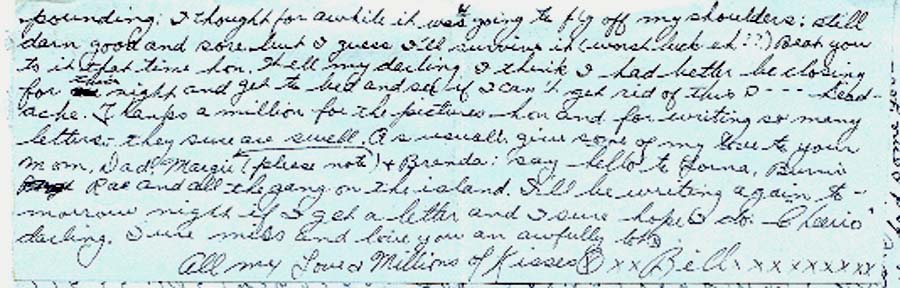 pounding; I thought for awhile it was going to fly off my shoulders; still
darn good and sore but I guess I'll survive it (worst luck eh??) Beat you
to it that time hon. Well my darling I think I had better be closing
for this night and get to bed and see if I can't get rid of this D---- head-
ache. Thanks a million for the pictures hon and for writing so many
letters - they sure are swell. As usual; give some of my love to your
Mom, Dad, Margie (please note) & Brenda; say hello to Lorna, Burni
Rae and all the gang on the island. I'll be writing again to-
morrow night if I get a letter and I sure hope I do. Cheerio
darling. I sure miss and love you an awfully lot.
All my Love & Millions of Kisses xx Bill xxxxxxxxx